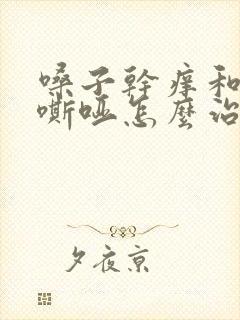 嗓子幹痒和
嘶哑怎麼治
夕夜京